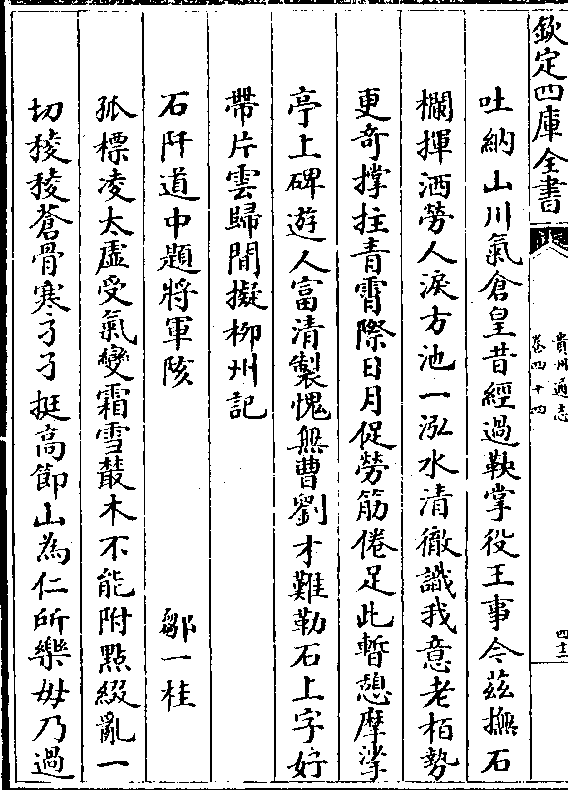 欽定四庫全書
貴州通志
卷四十四
四十三
吐納山川氣倉皇昔經過鞅掌役王事今茲撫石
欄揮洒勞人淚方池一泓水清徹識我意老柏勢
更奇撐拄青霄際日月促勞筋倦足此暫憩摩挲
亭上碑遊人富清製愧無曹劉才難勒石上字好
帶片雲歸閒擬柳州記
石阡道中題將軍陔 鄒一桂
孤標凌太虛受氣變霜雪叢木不能附點綴亂一
切稜稜蒼骨寒孑孑挺高節山為仁所樂毋乃過